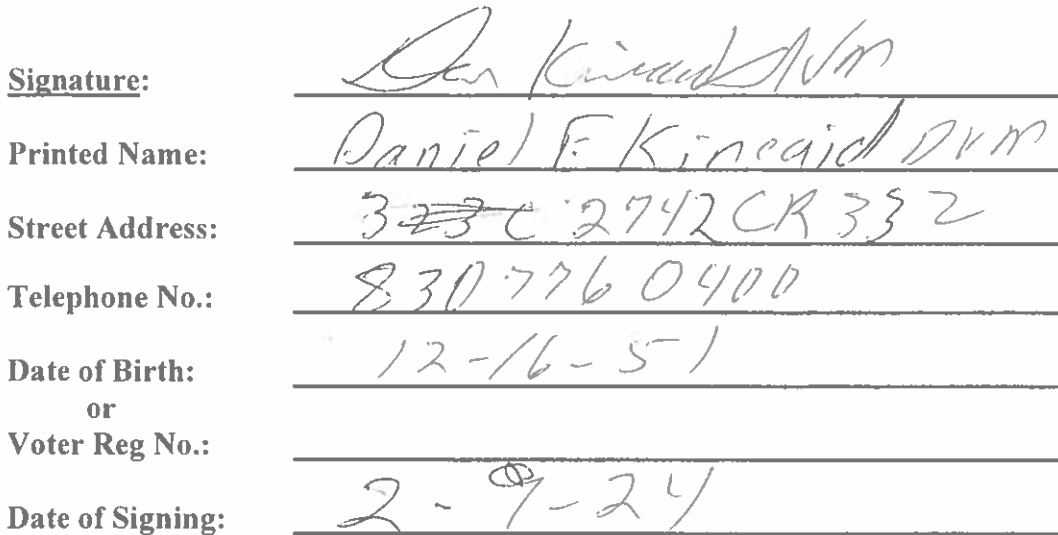 Signature: Dan Kincaid DVM
Printed Name: Daniel F. Kincaid DVM
Street Address: 2742 CR 332
Telephone No.: 830 776 0400
Date of Birth: 12-16-51
or
Voter Reg No.:
Date of Signing: 2-9-24